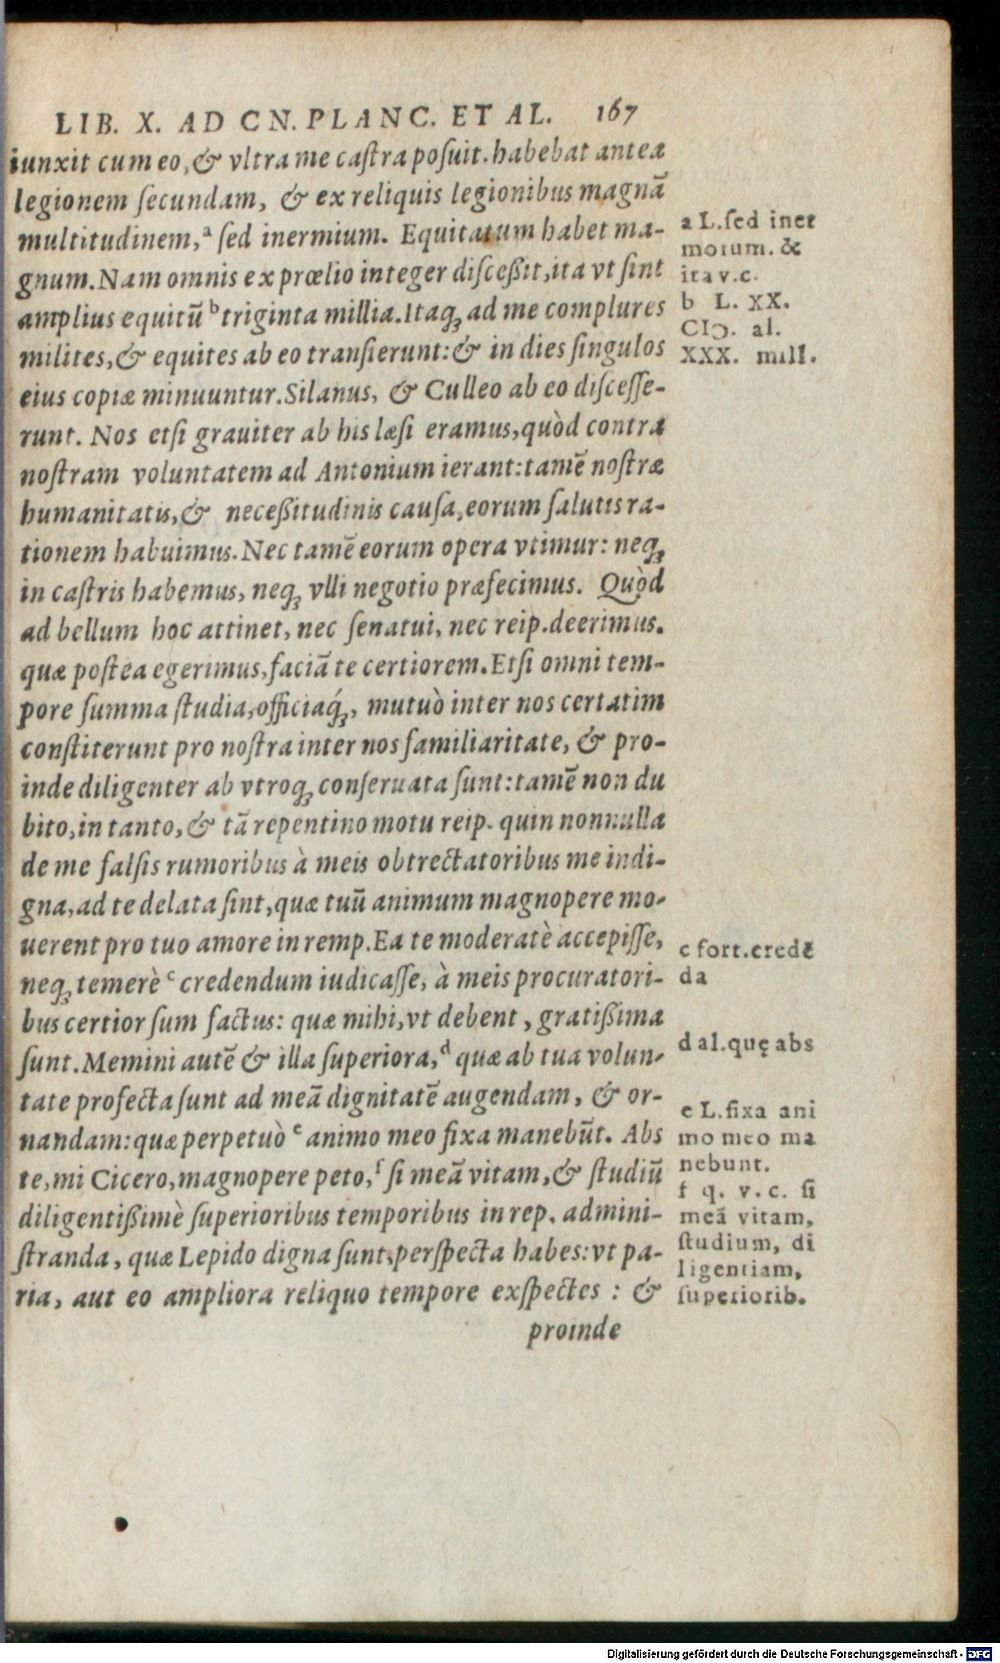 LIB. X. AD CN. PLANC. ET AL. 167
iunxit cum eo, & vltra me caſtra poſuit. habebat antea
legionem ſecundam, & ex reliquis legionibus magnā
multitudinem,ᵃ ſed inermium. Equitatum habet ma-
gnum. Nam omnis ex prœlio integer diſceßit, ita vt ſint
amplius equitū ᵇ triginta millia. Itaqꝫ ad me complures
milites, & equites ab eo tranſierunt: & in dies ſingulos
eius copiæ minuuntur. Silanus, & Culleo ab eo diſceſſe-
runt. Nos etſi grauiter ab his læſi eramus, quòd contra
noſtram voluntatem ad Antonium ierant: tamē noſtræ
humanitatis, & neceßitudinis cauſa, eorum ſalutis ra-
tionem habuimus. Nec tamē eorum opera vtimur: neqꝫ
in caſtris habemus, neqꝫ vlli negotio præfecimus. Quòd
ad bellum hoc attinet, nec ſenatui, nec reip. deerimus.
quæ poſtea egerimus, faciā te certiorem. Etſi omni tem-
pore ſumma ſtudia, officiaq́ꝫ, mutuò inter nos certatim
conſtiterunt pro noſtra inter nos familiaritate, & pro-
inde diligenter ab vtroqꝫ conſeruata ſunt: tamē non du
bito, in tanto, & tā repentino motu reip. quin nonnulla
de me falſis rumoribus à meis obtrectatoribus me indi-
gna, ad te delata ſint, quæ tuū animum magnopere mo-
uerent pro tuo amore in remp. Ea te moderatè accepiſſe,
neqꝫ temerè ᶜ credendum iudicaſſe, à meis procuratori-
bus certior ſum factus: quæ mihi, vt debent, gratißima
ſunt. Memini autē & illa ſuperiora,ᵈ quæ ab tua volun-
tate profecta ſunt ad meā dignitatē augendam, & or-
nandam: quæ perpetuò ᵉ animo meo fixa manebūt. Abs
te, mi Cicero, magnopere peto,ᶠ ſi meā vitam, & ſtudiū
diligentißimè ſuperioribus temporibus in rep. admini-
ſtranda, quæ Lepido digna ſunt, perſpecta habes: vt pa-
ria, aut eo ampliora reliquo tempore exſpectes : &
proinde
a L. ſed iner
motum. &
ita v.c.
b L. XX.
CIↃ. al.
XXX. mill.
c fort. credē
da
d al. quę abs
e L. fixa ani
mo meo ma
nebunt.
f q. v. c. ſi
meā vitam,
ſtudium, di
ligentiam,
ſuperiorib.
Digitalisierung gefördert durch die Deutsche Forschungsgemeinschaft - DFG